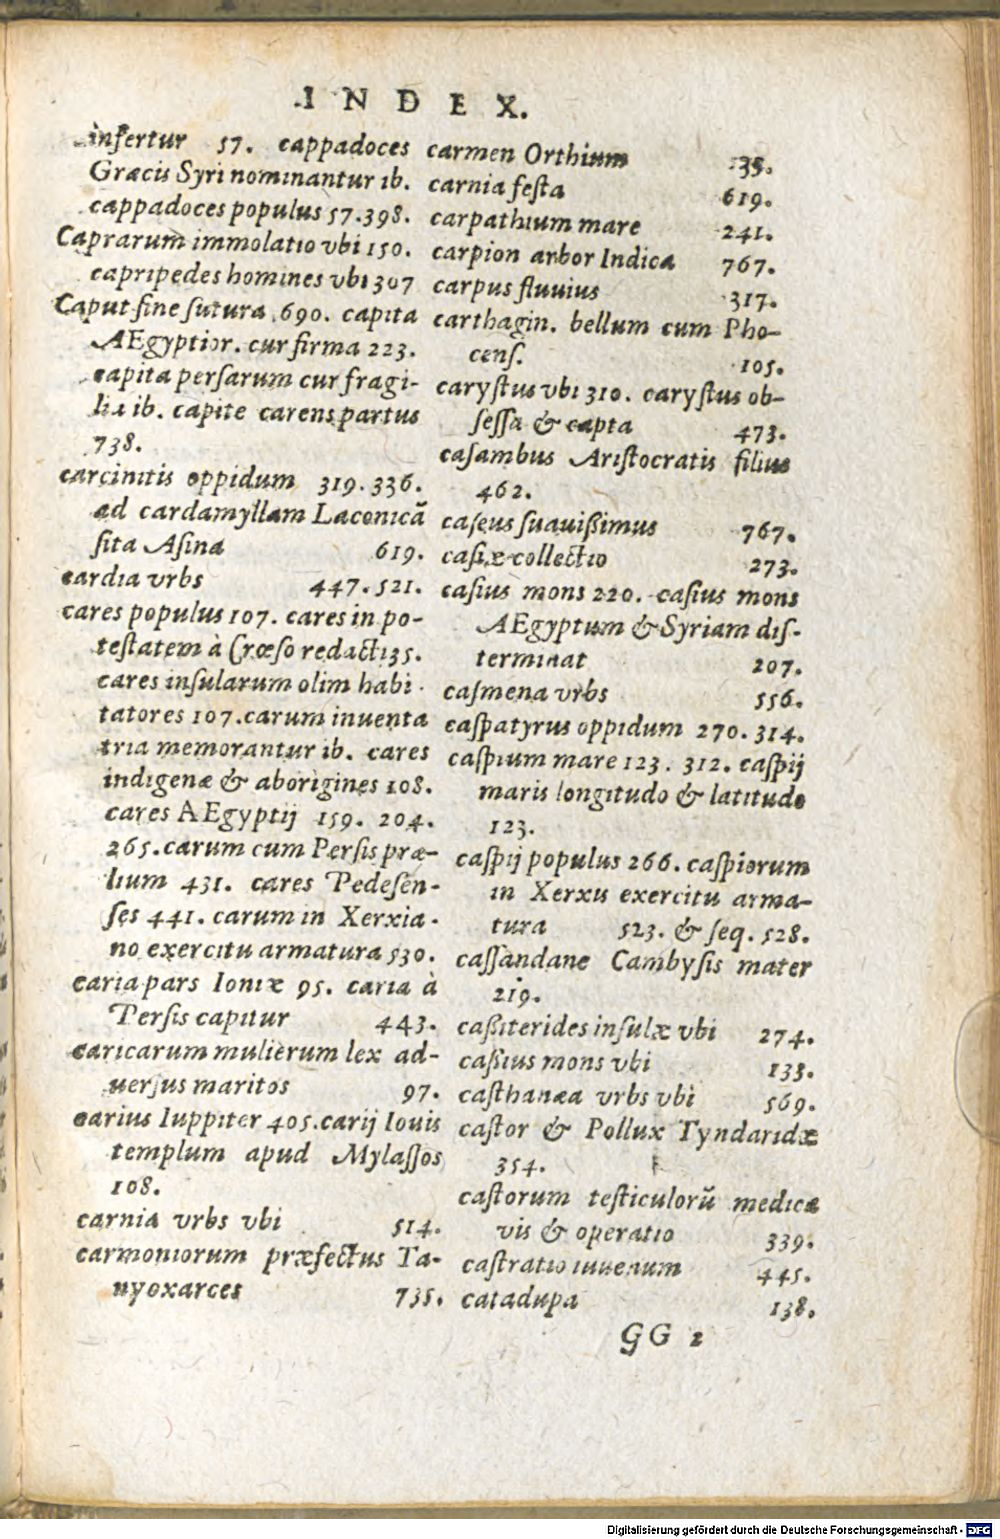 INDEX.
inſertur 57. cappadoces
Græcis Syri nominantur ib.
cappadoces populus 57.398.
Caprarum immolatio vbi 150.
capripedes homines vbi 307
Caput ſine ſutura 690. capita
AEgyptior. cur firma 223.
capita perſarum cur fragi-
lia ib. capite carens partus
738.
carcinitis oppidum 319.336.
ad cardamyllam Laconicā
ſita Aſina 619.
cardia vrbs 447.521.
cares populus 107. cares in po-
teſtatem à Crœſo redacti 35.
cares inſularum olim habi-
tatores 107. carum inuenta
tria memorantur ib. cares
indigenæ & aborigines 108.
cares AEgyptij 159. 204.
265. carum cum Perſis præ-
lium 431. cares Pedeſen-
ſes 441. carum in Xerxia-
no exercitu armatura 530.
caria pars Ioniæ 95. caria à
Perſis capitur 443.
caricarum mulierum lex ad-
uerſus maritos 97.
carius Iuppiter 405. carij Iouis
templum apud Mylaſſos
108.
carnia vrbs vbi 514.
carmoniorum præfectus Ta-
nyoxarces 735.
carmen Orthium 35.
carnia feſta 619.
carpathium mare 241.
carpion arbor Indica 767.
carpus fluuius 317.
carthagin. bellum cum Pho-
cenſ. 105.
caryſtus vbi 310. caryſtus ob-
ſeſſa & capta 473.
caſambus Ariſtocratis filius
462.
caſeus ſuauißimus 767.
caſiæ collectio 273.
caſius mons 220. caſius mons
AEgyptum & Syriam diſ-
terminat 207.
caſmena vrbs 556.
caſpatyrus oppidum 270. 314.
caſpium mare 123. 312. caſpij
maris longitudo & latitudo
123.
caſpij populus 266. caſpiorum
in Xerxis exercitu arma-
tura 523. & ſeq. 528.
caſſandane Cambyſis mater
219.
caßiterides inſulæ vbi 274.
caßius mons vbi 133.
caſthanæa vrbs vbi 569.
caſtor & Pollux Tyndaridæ
354.
caſtorum teſticulorū medica
vis & operatio 339.
caſtratio iuuenum 445.
catadupa 138.
GG 2
Digitalisierung gefördert durch die Deutsche Forschungsgemeinschaft - DFG